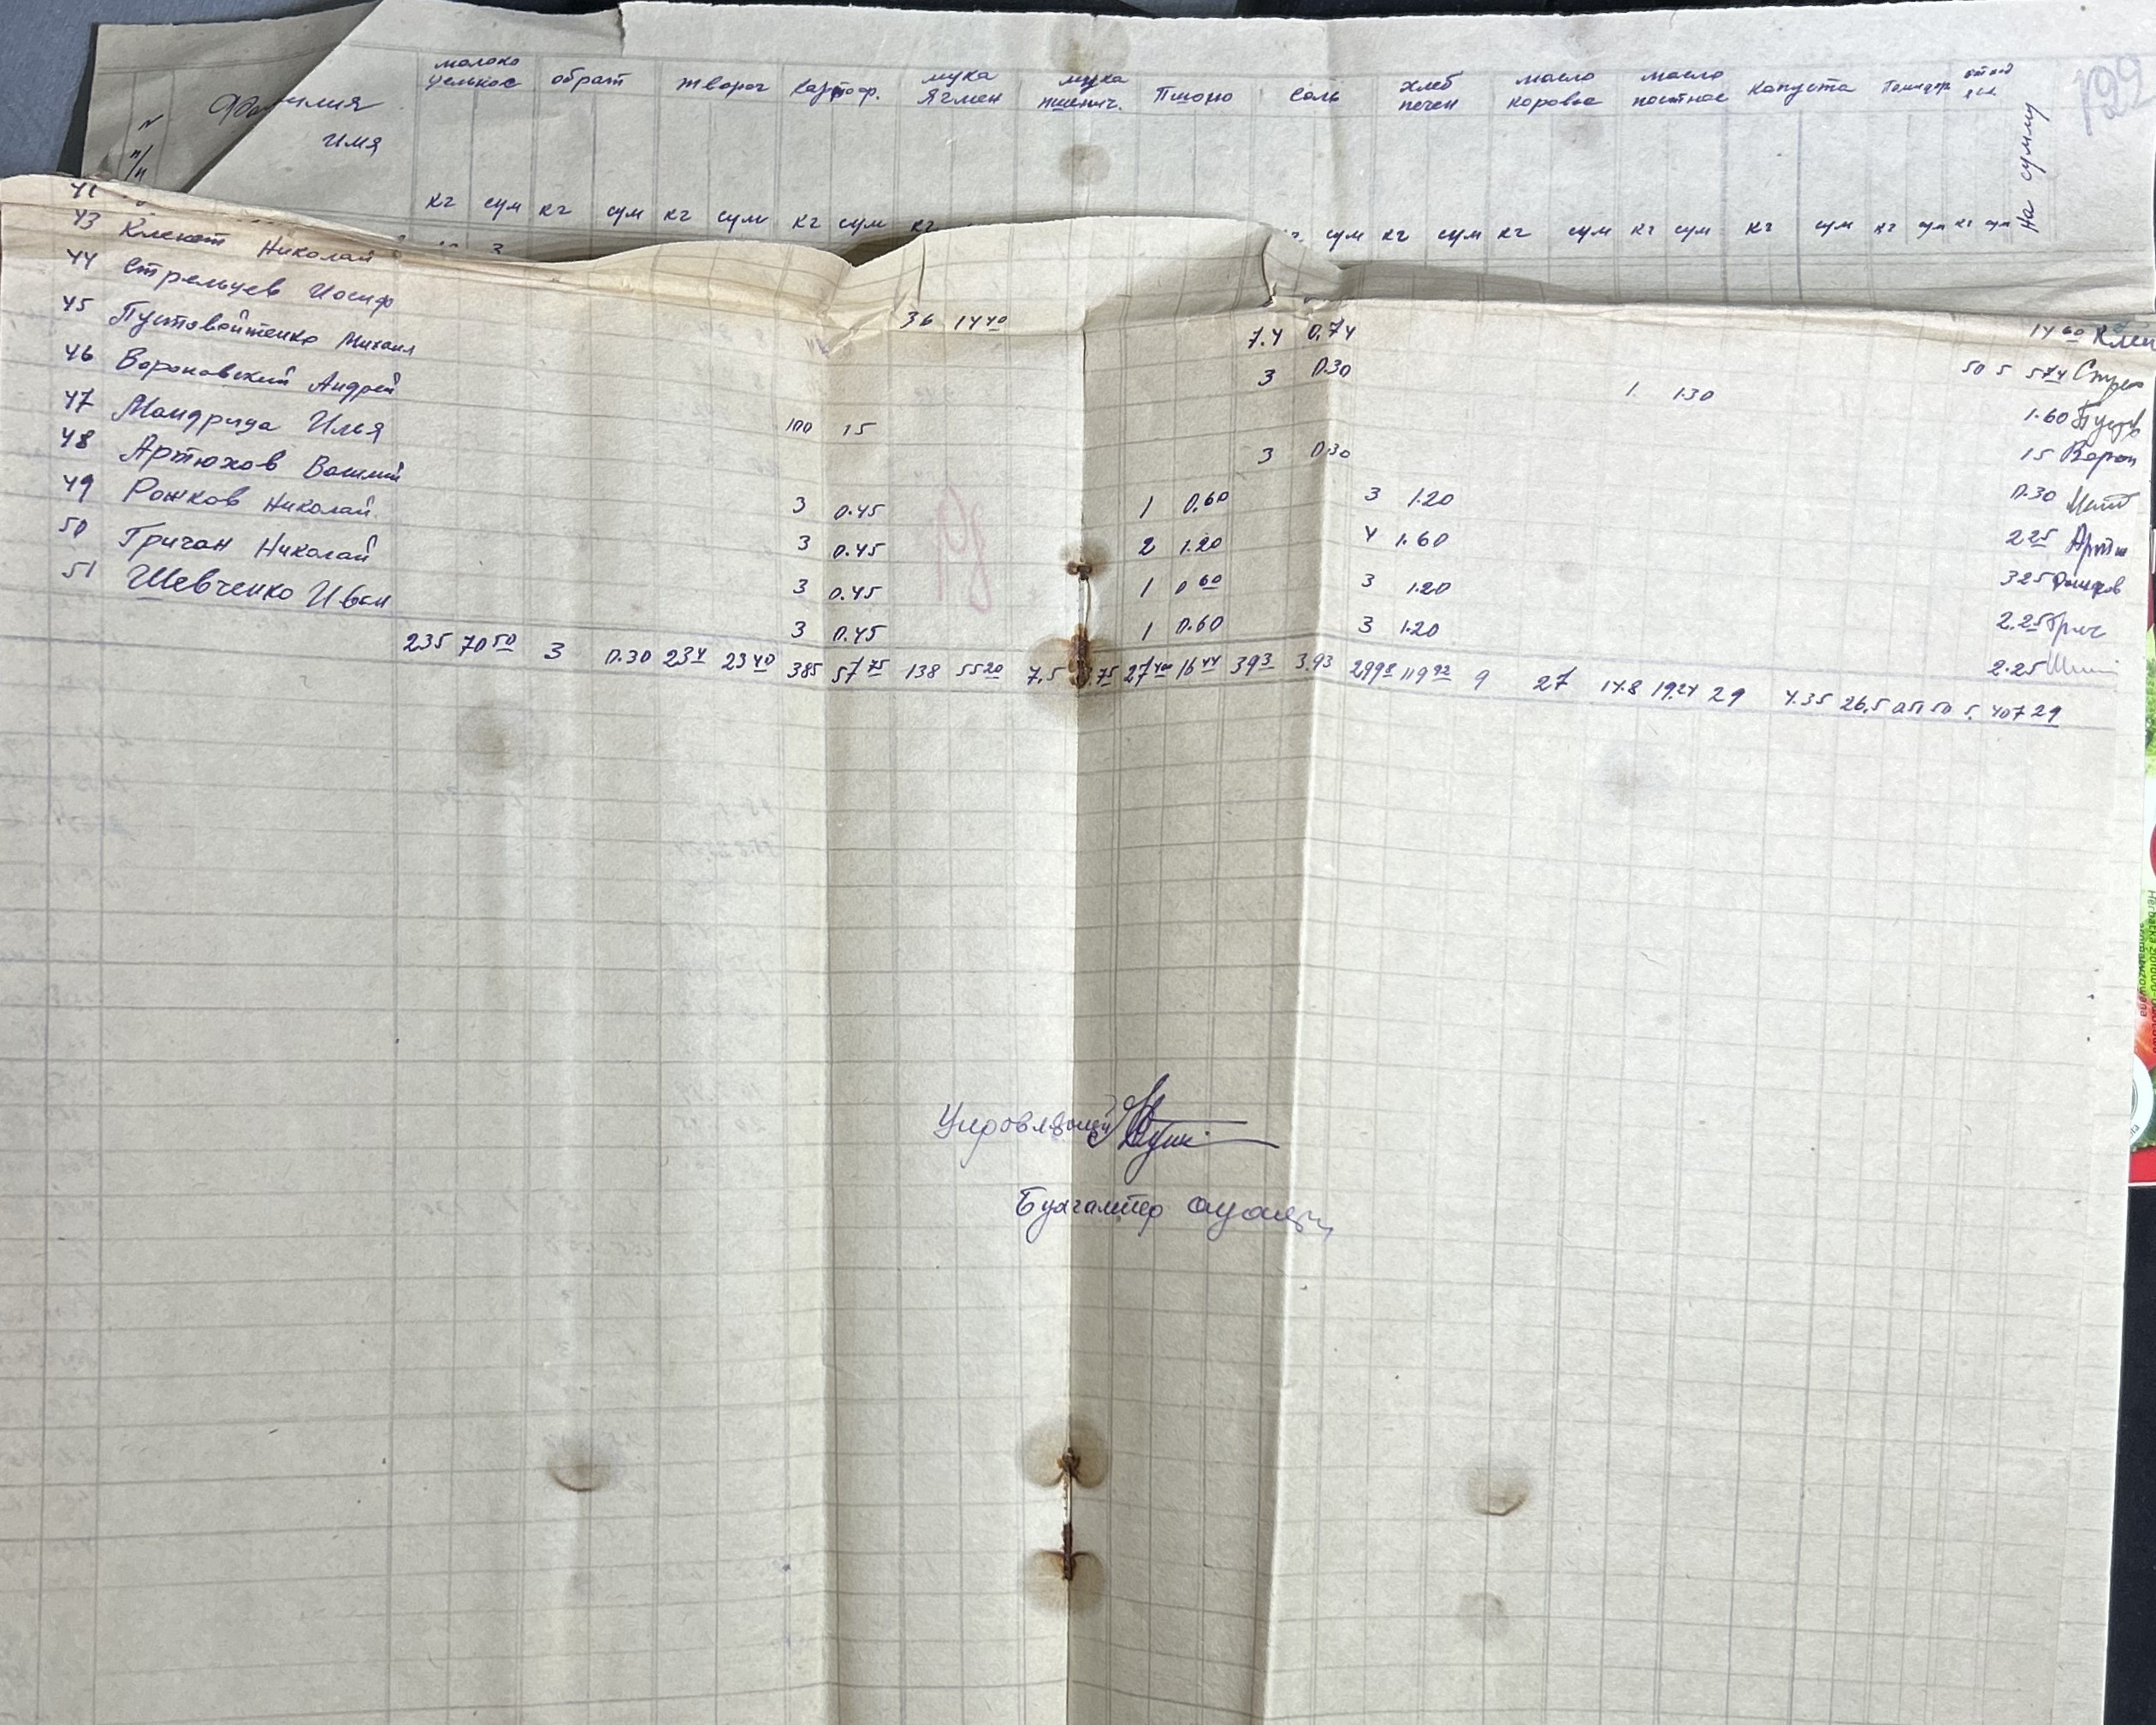 молоко цельное обрат творог картоф. мука ягмен мука пшенич. Пшоно соль хлеб печен масло коровье масло постное капуста Помидор
N п/п Фамилия имя На сумму 122
кг сум кг сум кг сум кг сум кг сум кг сум кг сум кг сум кг сум кг сум кг сум
43 Николай 36 14 40 14 60
44 Стрельцев Иосиф 7.4 0.74 50 5 5 74
45 Пустовойтенко Михаил 3 0.30 1 1.30 1.60
46 Вороновский Андрей 100 15 15
47 Мандрида Илья 3 0.30 0.30
48 Артюхов Василий 3 0.45 1 0.60 3 1.20 2 25
49 Рожков Николай 3 0.45 2 1.20 4 1.60 3 25
50 Гричан Николай 3 0.45 1 0 60 3 1.20 2.25
51 Шевченко Иван 3 0.45 1 0.60 3 1.20 2.25
235 70 50 3 0.30 23 4 23 40 385 57 75 138 55 20 7.5 27 400 16 44 39 3 3.93 299 8 119 92 9 27 14.8 19.24 29 4.35 26.5 50 5. 407 29
Управляющий
Бухгалтер